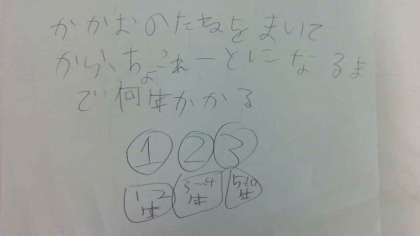 かかおのたねをまいて
から、ちょこれーとになるま
で何年かかる
1 2 3
1~2年 3~4年